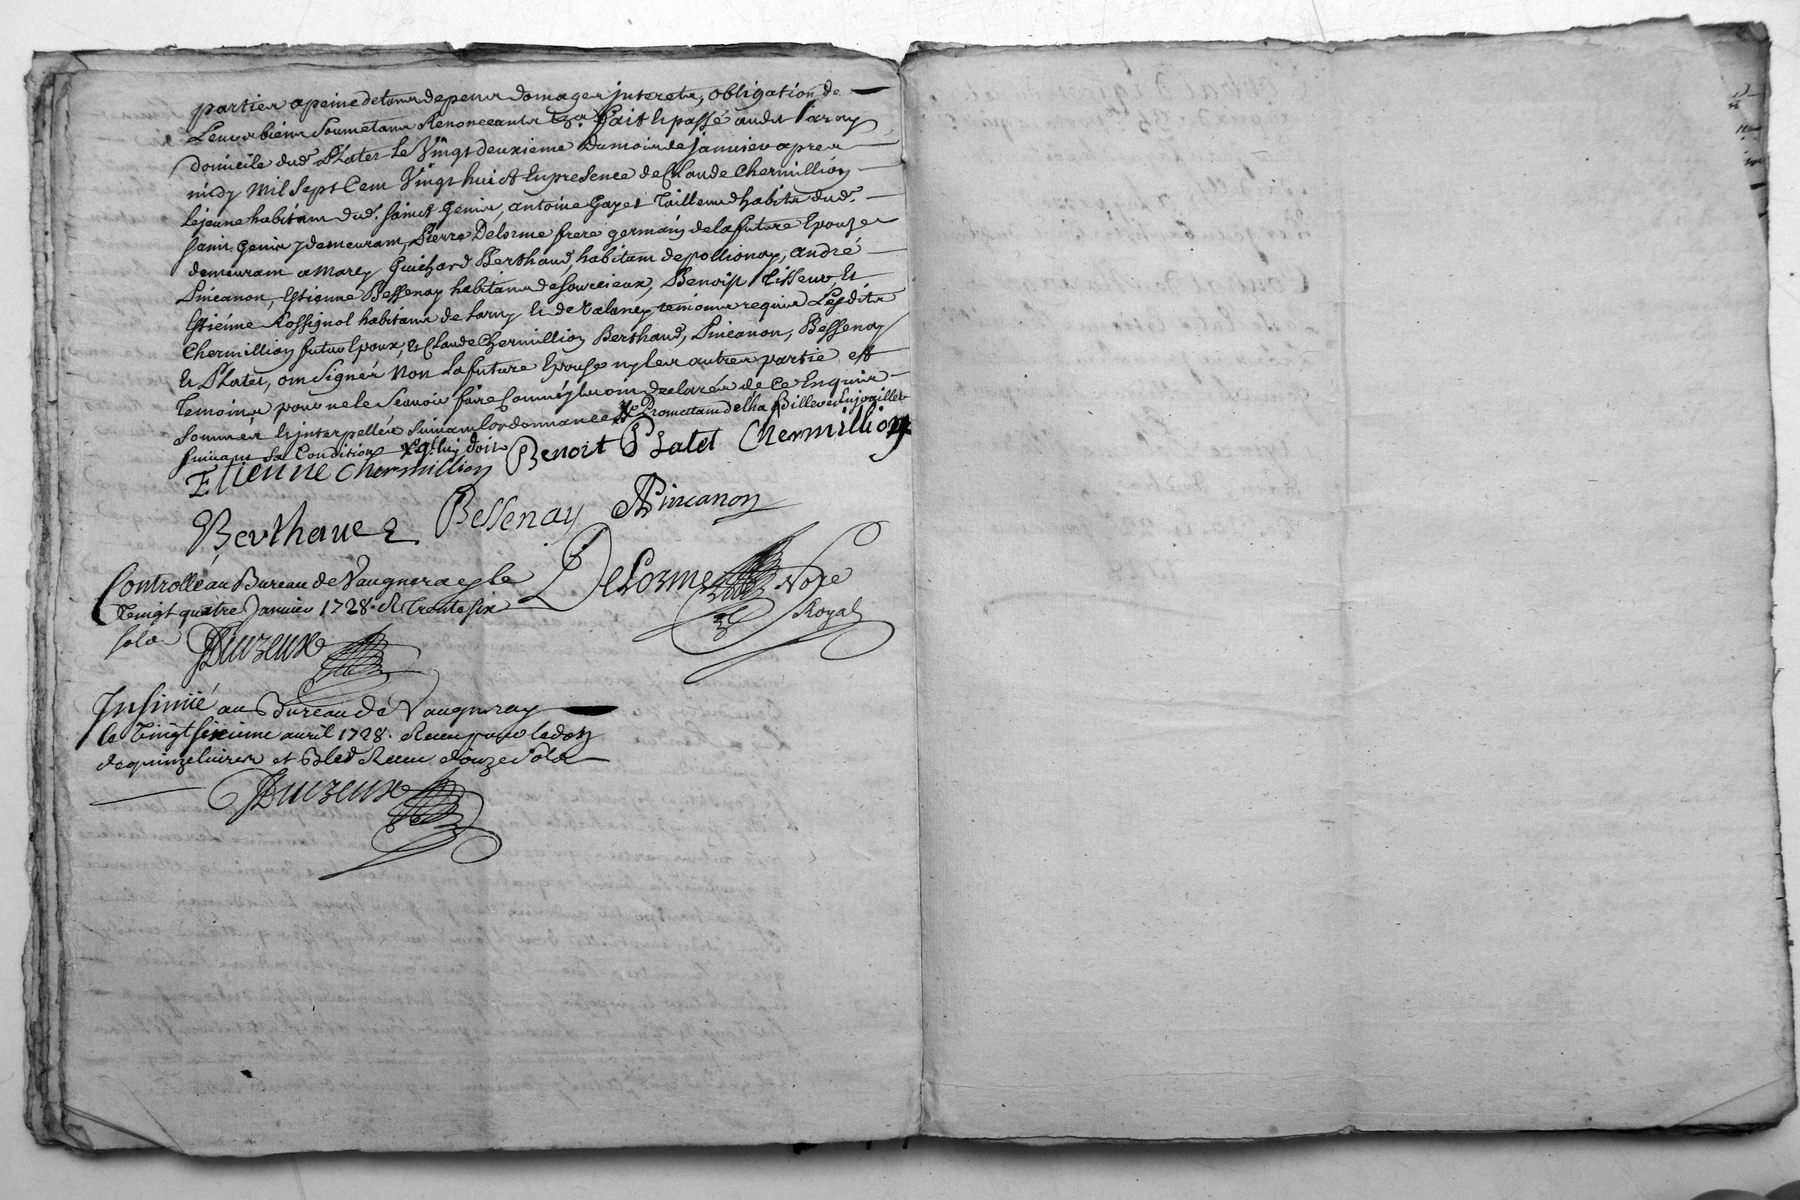 parties a peine de tous depens domages jnterets, obligation de
Leurs biens Soumetans Renonceants &a. Fait & passé audit Larny
domicile dud. Platet Le Vingt deuxieme du mois de janvier apres
midy Mil Sept Cent Vingt huict En presence de Claude Chermillion
Lejeune habitant dud. Sainct Genis, antoine Gayet Tailleur d'habits dud.
Saint Genis y demeurant, Pierre Delorme frere germain de la future Epouse
demeurant a Marcy Guichard Berthaud, habitant de pollionay, andré
Pincanon, Estienne Bessenay habitans de Sourcieux, Benoist Tisseur, Et
Estienne Rossignol habitans de Larny & de Valaney temoins requis Lesdits
Chermillion futur Epoux, & Claude Chermillion Berthaud, Pincanon, Bessenay
& Platet, ont Signés Non La future Epouse ny les autres partie et
Temoins pour ne le Scavoir faire Comme ils ont declarés de Ce Enquis
Sommés & interpellés Suivant Lordonnance X Promettant de l'ha Biller & Enjoailler
Suivant Sa Condition X qt. luy doit
Etienne chermillion Benoit Platet Chermillion
Berthaud Bessenay APincanon
Controllé au Bureau de Vaugneray le
Vingt quatre Janvier 1728. R Trente six
sols Duzeux
Delorme Nore
Royal
Insinué au Bureau de Vaugneray
le Vingt sixieme avril 1728. Receu pour le don
de quinze livres et Bled Receu douze sols
Duzeux